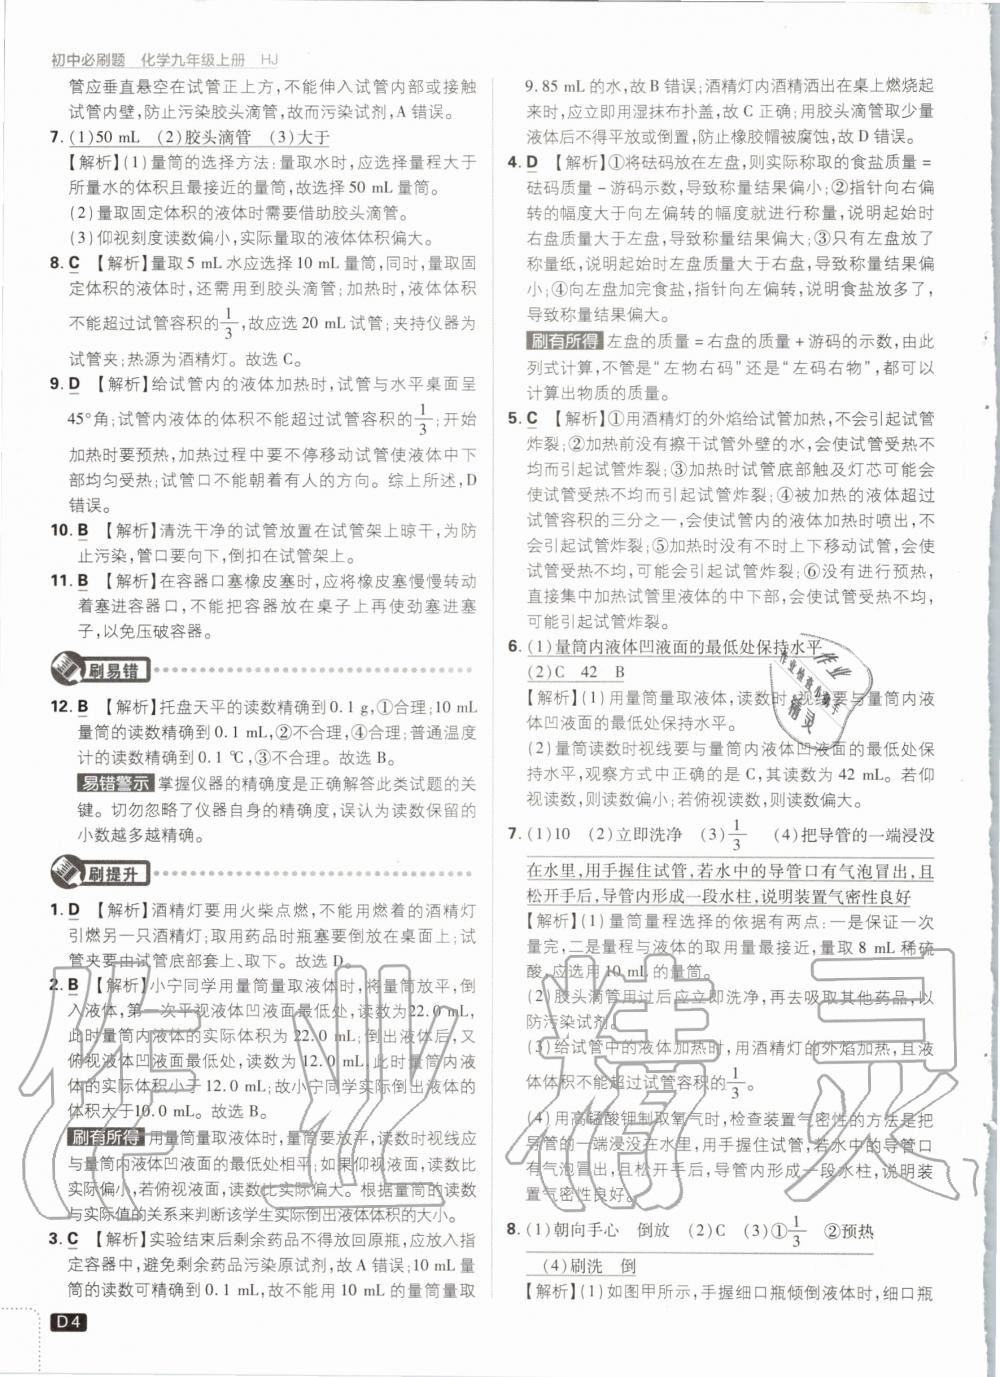 初中必刷题 化学九年级上册 HJ
管应垂直悬空在试管正上方,不能伸入试管或接触
试管内壁,防止污染胶头滴管,故而污染试剂,A 错误。
7. (1)50 mL (2)胶头滴管 (3)大于
【解析】(1)量筒的选择方法:量取水时,应选择量程大于
所量水的体积且最接近的量筒,故选择 50 mL 量筒。
(2)量取固定体积的液体时需要借助胶头滴管。
(3)仰视刻度读数偏小,实际量取的液体体积偏大。
8. C 【解析】量取 5 mL 水应选择 10 mL 量筒,同时,量取固
定体积的液体时,还需用到胶头滴管;加热时,液体体积
不能超过试管容积的1/3,故应选 20 mL 试管;夹持仪器为
试管夹;热源为酒精灯。故选 C。
9. D 【解析】给试管内的液体加热时,试管与水平桌面呈
45°角;试管内液体的体积不能超过试管容积的1/3;开始
加热时要预热,加热过程中要不停移动试管使液体中下
部均匀受热;试管口不能朝着有人的方向。综上所述,D
错误。
10. B 【解析】清洗干净的试管放置在试管架上晾干,为防
止污染,管口要向下,倒扣在试管架上。
11. B 【解析】在容器口塞橡皮塞时,应将橡皮塞慢慢转动
着塞进容器口,不能把容器放在桌子上再使劲塞进塞
子,以免压破容器。
刷易错
12. B 【解析】托盘天平的读数精确到 0.1 g,①合理;10 mL
量筒的读数精确到 0.1 mL,②不合理,④合理;普通温度
计的读数精确到 0.1 ℃,③不合理。故选 B。
易错警示 掌握仪器的精确度是正确解答此类试题的关
键。切勿忽略了仪器自身的精确度,误认为读数保留的
小数越多越精确。
刷提升
1. D 【解析】酒精灯要用火柴点燃,不能用燃着的酒精灯
引燃另一只酒精灯;取用药品时瓶塞要倒放在桌面上;试
管夹要由试管底部套上、取下。故选 D。
2. B 【解析】小宁同学用量筒量取液体时,将量筒放平,倒
入液体,第一次平视液体凹液面最低处,读数为22.0 mL,
此时量筒内液体的实际体积为 22.0 mL;倒出液体后,又
俯视液体凹液面最低处,读数为 12.0 mL,此时量筒内液
体的实际体积小于 12.0 mL;故小宁同学实际倒出液体的
体积大于10.0 mL。故选 B。
刷有所得 用量筒量取液体时,量筒要放平,读数时视线应
与量筒内液体凹液面的最低处相平;如果仰视液体,读数比
实际偏小,若俯视液体,读数比实际偏大。根据量筒的读数
与实际值的关系来判断该学生实际倒出液体体积的大小。
3. C 【解析】实验结束后剩余药品不得放回原瓶,应放入指
定容器中,避免剩余药品污染原试剂,故 A 错误;10 mL 量
筒的读数可精确到 0.1 mL,故不能用 10 mL 的量筒量取
9.85 mL 的水,故 B 错误;酒精灯内酒精洒出在桌上燃烧起
来时,应立即用湿抹布扑盖,故 C 正确;用胶头滴管取少量
液体后不得平放或倒置,防止橡胶帽被腐蚀,故 D 错误。
4. D 【解析】①将砝码放在左盘,则实际称取的食盐质量 =
砝码质量 - 游码示数,导致称量结果偏小;②指针向右偏
转的幅度大于向左偏转的幅度就进行称量,说明起始时
右盘质量大于左盘,导致称量结果偏大;③只有左盘放了
称量纸,说明起始时左盘质量大于右盘,导致称量结果偏
小;④向左盘加完食盐,指针向左偏转,说明食盐放多了,
导致称量结果偏大。
刷有所得 左盘的质量 = 右盘的质量 + 游码的示数,由此
列式计算,不管是“左物右码”还是“左码右物”,都可以
计算出物质的质量。
5. C 【解析】①用酒精灯的外焰给试管加热,不会引起试管
炸裂;②加热前没有擦干试管外壁的水,会使试管受热不
均而引起试管炸裂;③加热时试管底部触及灯芯可能会
使试管受热不均而引起试管炸裂;④被加热的液体超过
试管容积的三分之一,会使试管内的液体加热时喷出,不
会引起试管炸裂;⑤加热时没有不时上下移动试管,会使
试管受热不均,可能引起试管炸裂;⑥没有进行预热,
直接集中加热试管里液体的中下部,会使试管受热不均,
可能引起试管炸裂。
6. (1)量筒内液体凹液面的最低处保持水平
(2)C 42 B
【解析】(1)用量筒量取液体,读数时,视线要与量筒内液
体凹液面的最低处保持水平。
(2)量筒读数时视线要与量筒内液体凹液面的最低处保
持水平,观察方式中正确的是 C,其读数为 42 mL。若仰
视读数,则读数偏小;若俯视读数,则读数偏大。
7. (1)10 (2)立即洗净 (3)1/3 (4)把导管的一端浸没
在水里,用手握住试管,若水中的导管口有气泡冒出,且
松开手后,导管内形成一段水柱,说明装置气密性良好
【解析】(1)量筒量程选择的依据有两点:一是保证一次
量完,二是量程与液体的取用量最接近,量取 8 mL 稀硫
酸,应选用 10 mL 的量筒。
(2)胶头滴管用过后应立即洗净,再去吸取其他药品,以
防污染试剂。
(3)给试管中的液体加热时,用酒精灯的外焰加热,且液
体体积不能超过试管容积的1/3。
(4)用高锰酸钾制取氧气时,检查装置气密性的方法是把
导管的一端浸没在水里,用手握住试管,若水中的导管口
有气泡冒出,且松开手后,导管内形成一段水柱,说明装
置气密性良好。
8. (1)朝向手心 倒放 (2)C (3)①1/3 ②预热
(4)刷洗 倒
【解析】(1)如图甲所示,手握细口瓶倾倒液体时,细口瓶
D4
作业检查小助手
作业精灵
作业精灵